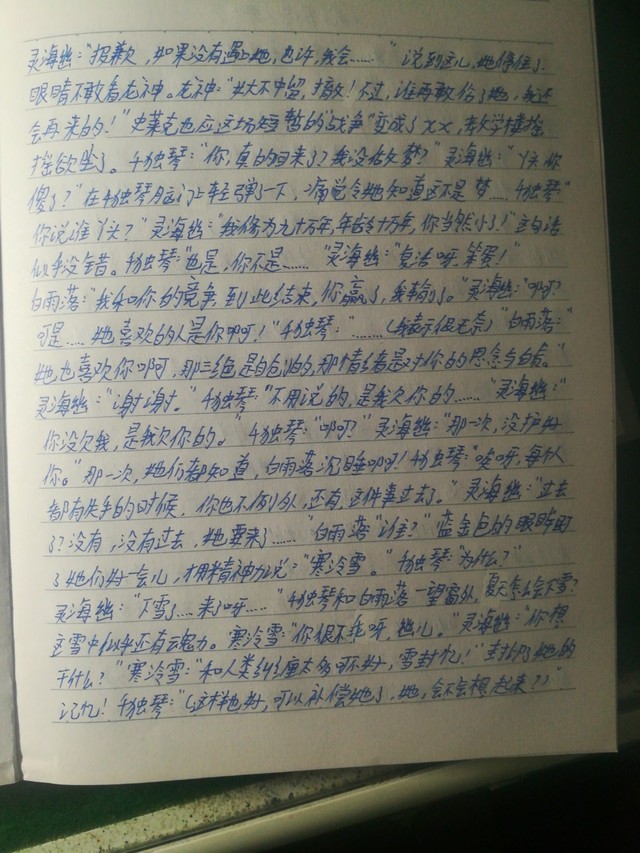 灵海幽："抱歉，如果没有遇上她，也许，我会……" 说到这儿，她停住了
眼睛不敢看龙神。龙神："女大不中留，撤！不过，谁再敢伤了她，我还
会再来的！"史莱克也应这场短暂的"战争"变成了xx，教学楼摇
摇欲坠了。千独琴："你，真的回来了？我没在做梦？"灵海幽："丫头你
傻了？"在千独琴脑门上轻弹了一下，痛觉令她知道这不是梦……千独琴"
你说谁丫头？"灵海幽："我修为九十万年，年龄十万年，你当然小了！"这句话
似乎没错。千独琴"也是，你不是……"灵海幽："复活呀，笨蛋！"
白雨落："我和你的竞争，到此结束，你赢了，我输了。"灵海幽："啊？
可是……她喜欢的人是你啊！"千独琴："……(表示很无奈)"白雨落："
她也喜欢你啊，那三绝是自创的，那情绪是对你的思念与自责。"
灵海幽："谢谢。"千独琴："不用说的，是我欠你的……"灵海幽："
你没欠我，是我欠你的。"千独琴："啊？"灵海幽："那一次，没护好
你。"那一次，她们都知道，白雨落沉睡啊！千独琴："唉呀，每个人
都有失手的时候，你也不例外，还有，这件事过去了。"灵海幽："过去
了？没有，没有过去，她要来了……"白雨落"谁？"蓝金色的眼眸盯
了她们好一会儿，才用精神力说："寒冷雪。"千独琴："为什么？"
灵海幽："下雪了……来了呀……"千独琴和白雨落一望窗外，夏天怎么会下雪？
这雪中似乎还有魂力。寒冷雪："你很不乖呀，幽儿。"灵海幽："你想
干什么？"寒冷雪："和人类纠缠太多可不好，雪封忆！"封印了她的
记忆！千独琴："(这样也好，可以补偿她了，她，会不会想起来？)"